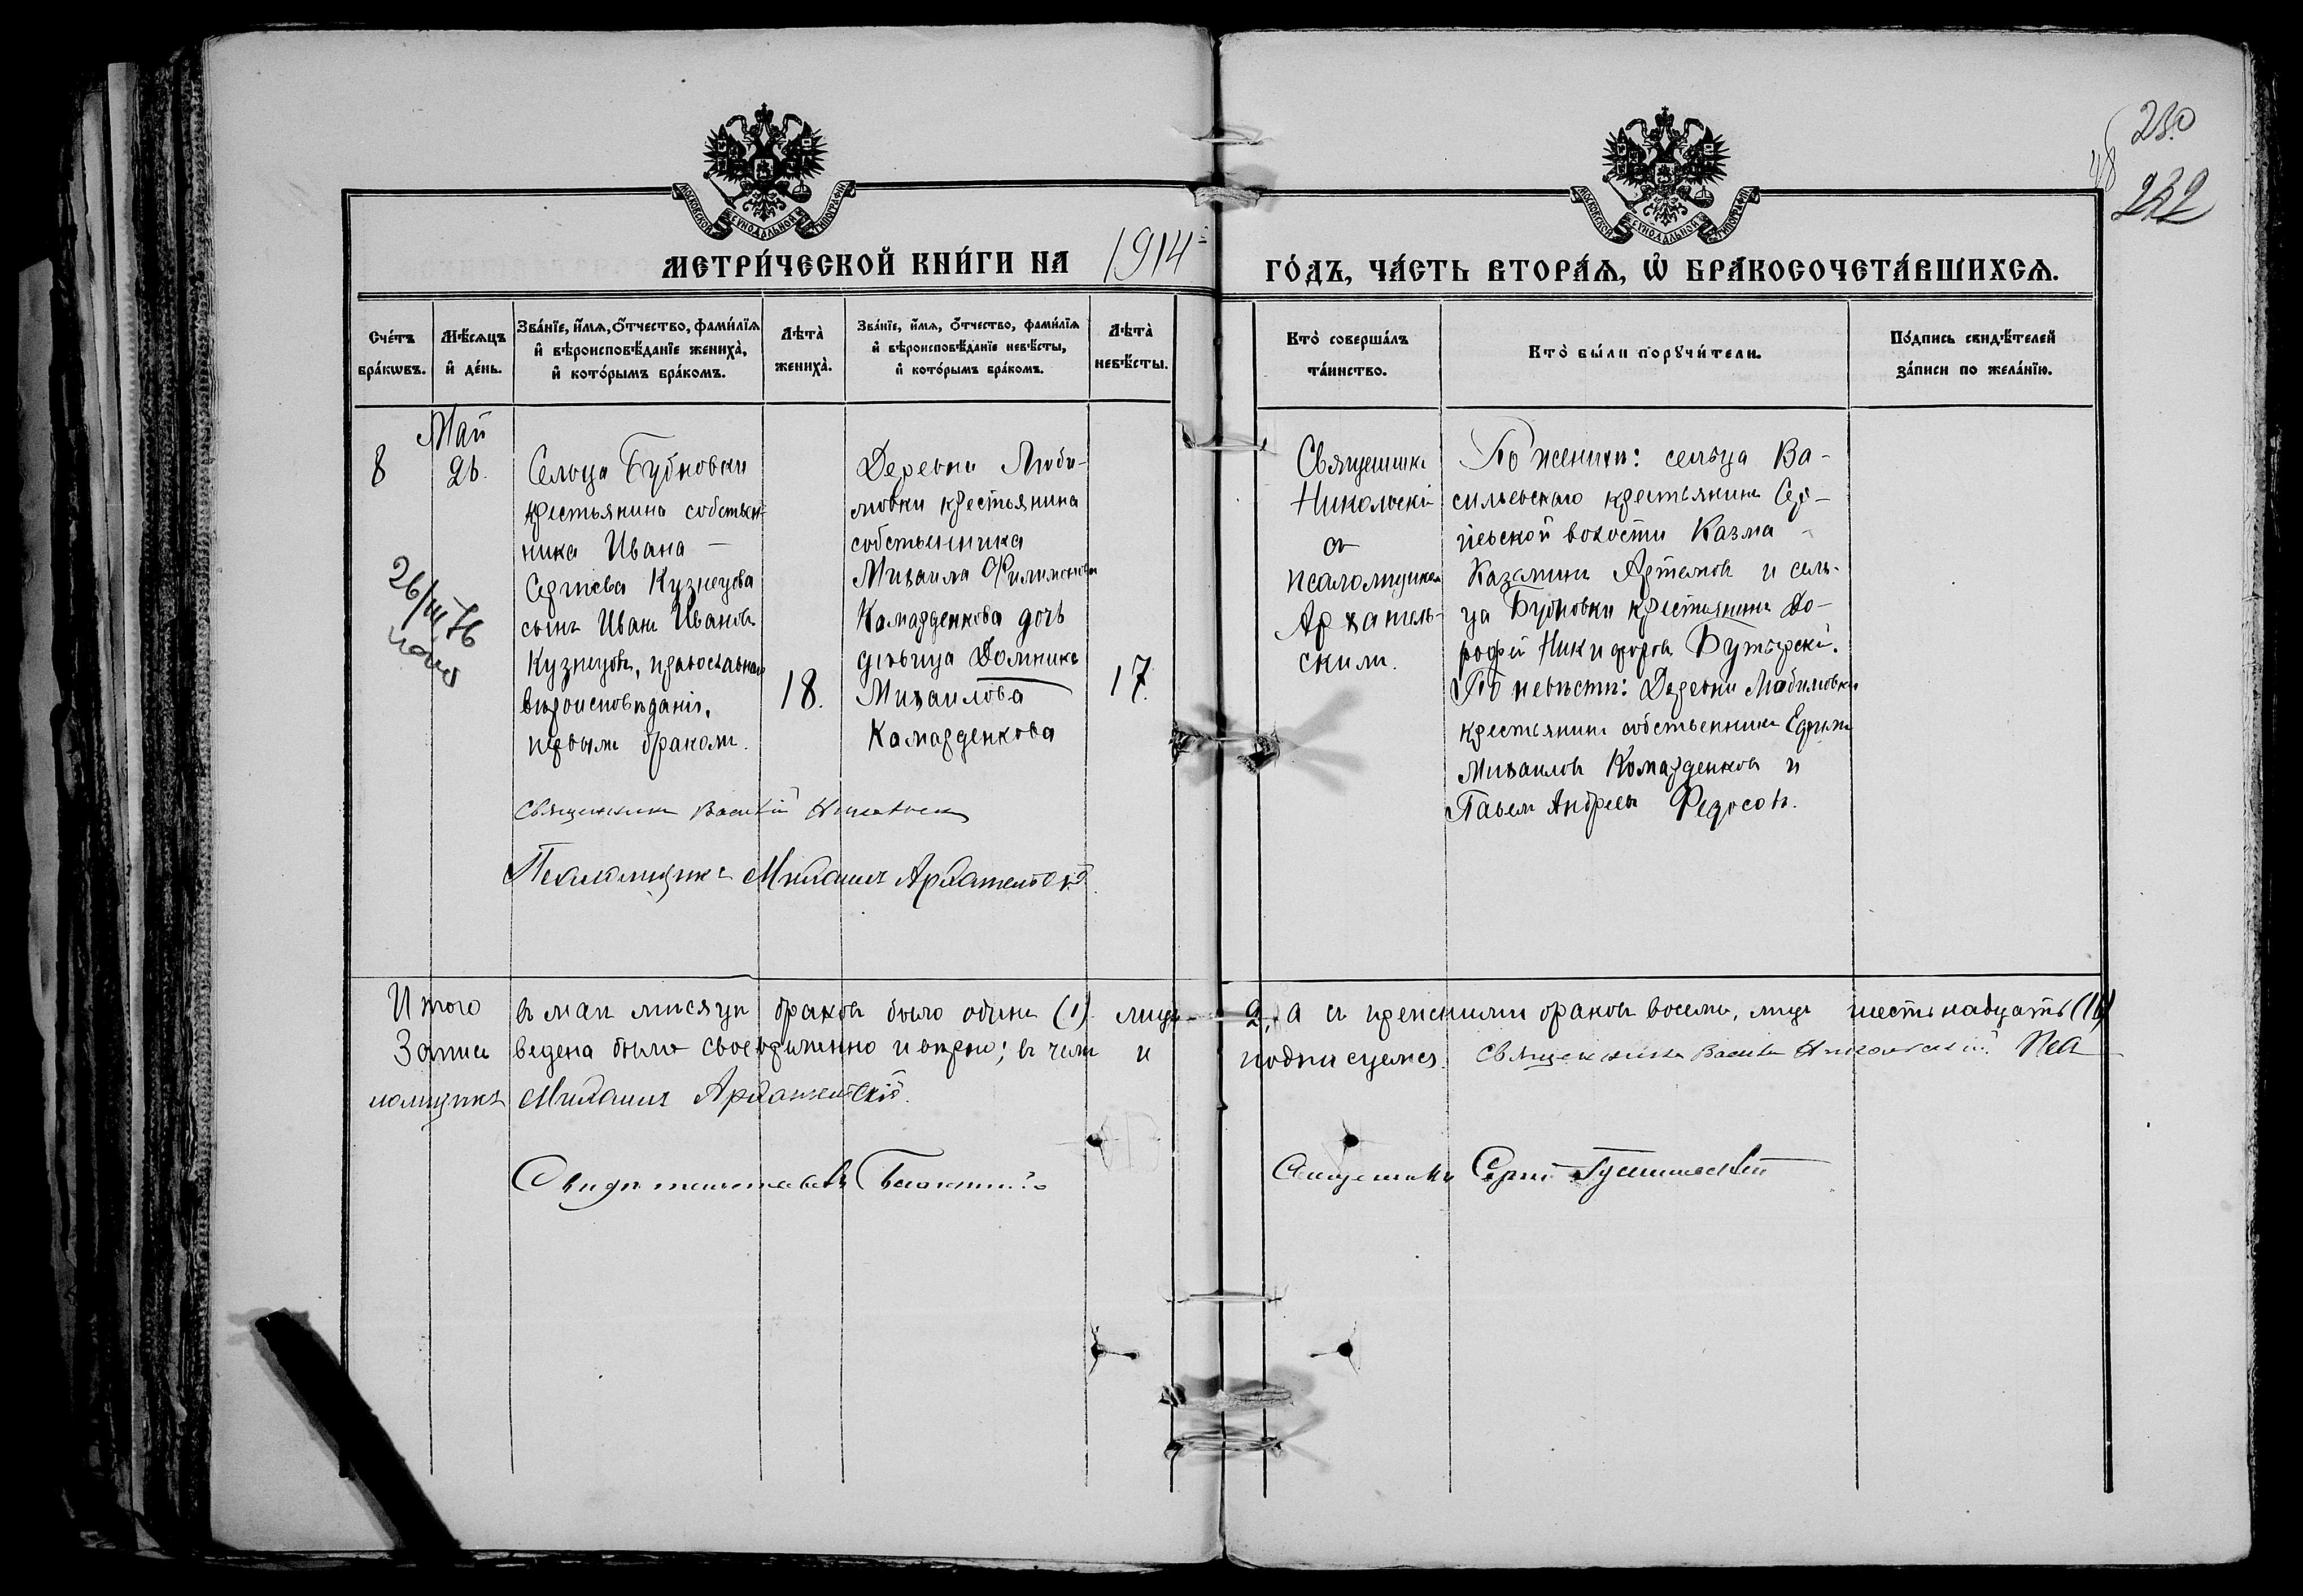 230
48
232
МОСКОВСКОЙ СѴНОДАЛЬНОЙ ТИПОГРАФІИ
МОСКОВСКОЙ СѴНОДАЛЬНОЙ ТИПОГРАФІИ
МЕТРИ́ЧЕСКОЙ КНИ́ГИ НА 1914
ГО́ДЪ, ЧА́СТЬ ВТОРА́Ѧ, Ѡ҆ БРАКОСОЧЕТА́ВШИХСѦ.
Сче́тъ бра́кѡвъ.
Мѣ́сѧцъ и҆ де́нь.
Зва́нїе, и҆́мѧ, ѻ҆́тчество, фами́лїѧ
и҆ вѣроисповѣ́данїе жениха̀,
и҆ кото́рымъ бра́комъ.
Лѣта̀ жениха̀.
Зва́нїе, и҆́мѧ, ѻ҆́тчество, фами́лїѧ
и҆ вѣроисповѣ́данїе невѣ́сты,
и҆ кото́рымъ бра́комъ.
Лѣта̀ невѣ́сты.
Кто̀ соверша́лъ та́инство.
Кто̀ бы́ли порꙋчи́тели.
По́дпись свидѣ́телей за́писи по жела́нїю.
8
Май
26.
26/III 76
Сельца Бубновки
крестьянина собствен-
ника Ивана —
Сергіева Кузнецова
сынъ Иванъ Ивановъ
Кузнецовъ, православнаго
вѣроисповѣданія,
первымъ бракомъ.
18.
Деревни Люби-
мовки крестьянина
собственника
Михаила Филимонова
Камарденкова дочь
дѣвица Домника
Михаилова
Камарденкова
17.
Священникъ
Никольскій
съ
псаломщикомъ
Архангель-
скимъ.
По женихѣ: сельца Ва-
сильевскаго крестьянинъ Сер-
гіевской волости Казма
Казминъ Артемовъ и сель-
ца Бубновки крестьянинъ До-
рофей Никифоровъ Бутырскій.
По невѣстѣ: Деревни Любимовки
крестьянинъ собственникъ Ефимъ
Михаиловъ Комарденковъ и
Павелъ Андреевъ Федосовъ.
Священникъ Василій Никольскій
Псаломщикъ Михаилъ Архангельскій.
Итого въ маѣ мѣсяцѣ браковъ было одинъ (1) лицъ 2, а съ прежними браковъ восемь, лицъ шестьнадцать (16)
Запись ведена была своевременно и вѣрно; въ чемъ и подписуемся. Священникъ Василій Никольскій. Пса
ломщикъ Михаилъ Архангельскій.
Священникъ Сергій